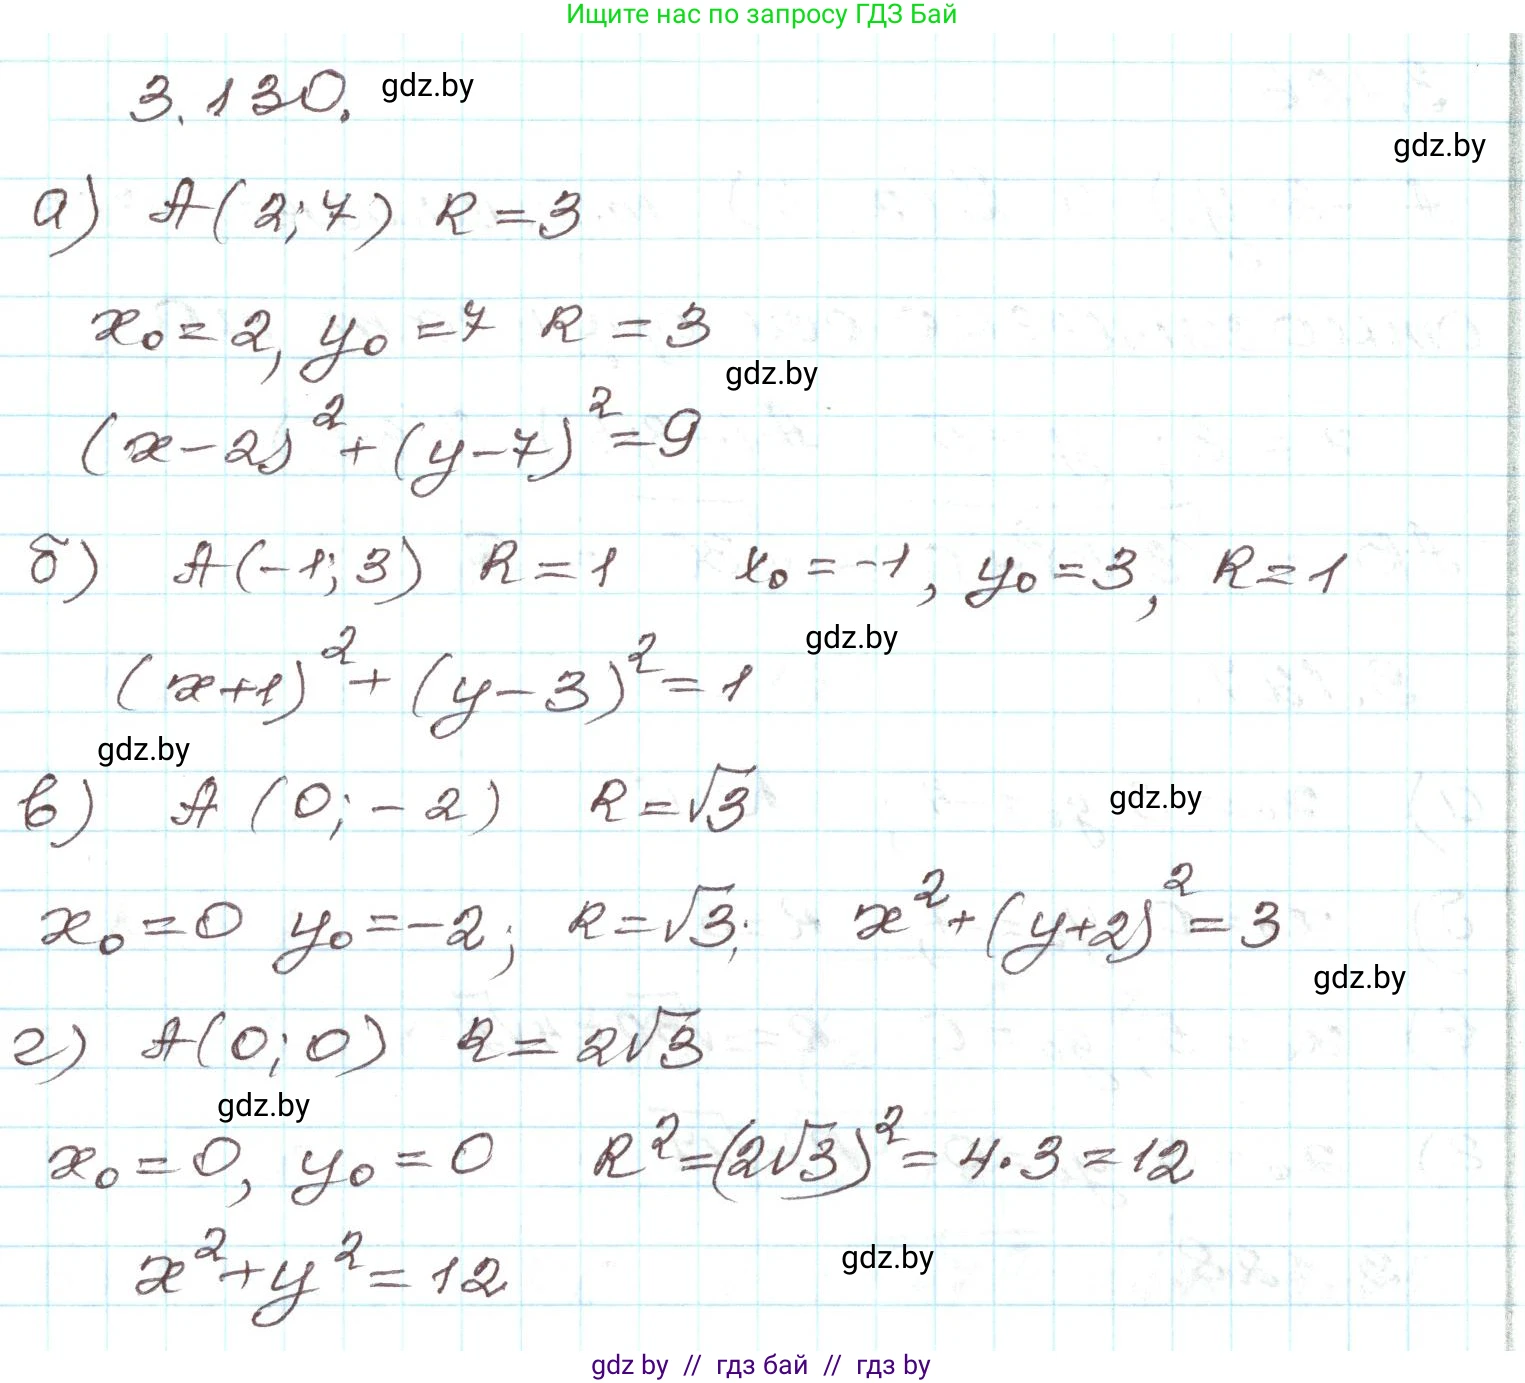 Ищите нас по запросу ГДЗ Бай
3.130. gdz.by
gdz.by
а) A(2;7) R=3
x₀=2, y₀=7 R=3
gdz.by
(x-2)²+(y-7)²=9
б) A(-1;3) R=1 x₀=-1, y₀=3, R=1
gdz.by
(x+1)²+(y-3)²=1
gdz.by
в) A(0;-2) R=√3
gdz.by
x₀=0 y₀=-2; R=√3; x²+(y+2)²=3
gdz.by
г) A(0;0) R=2√3
gdz.by
x₀=0, y₀=0 R²=(2√3)²=4·3=12
x²+y²=12
gdz.by
gdz by // гдз бай // гдз by